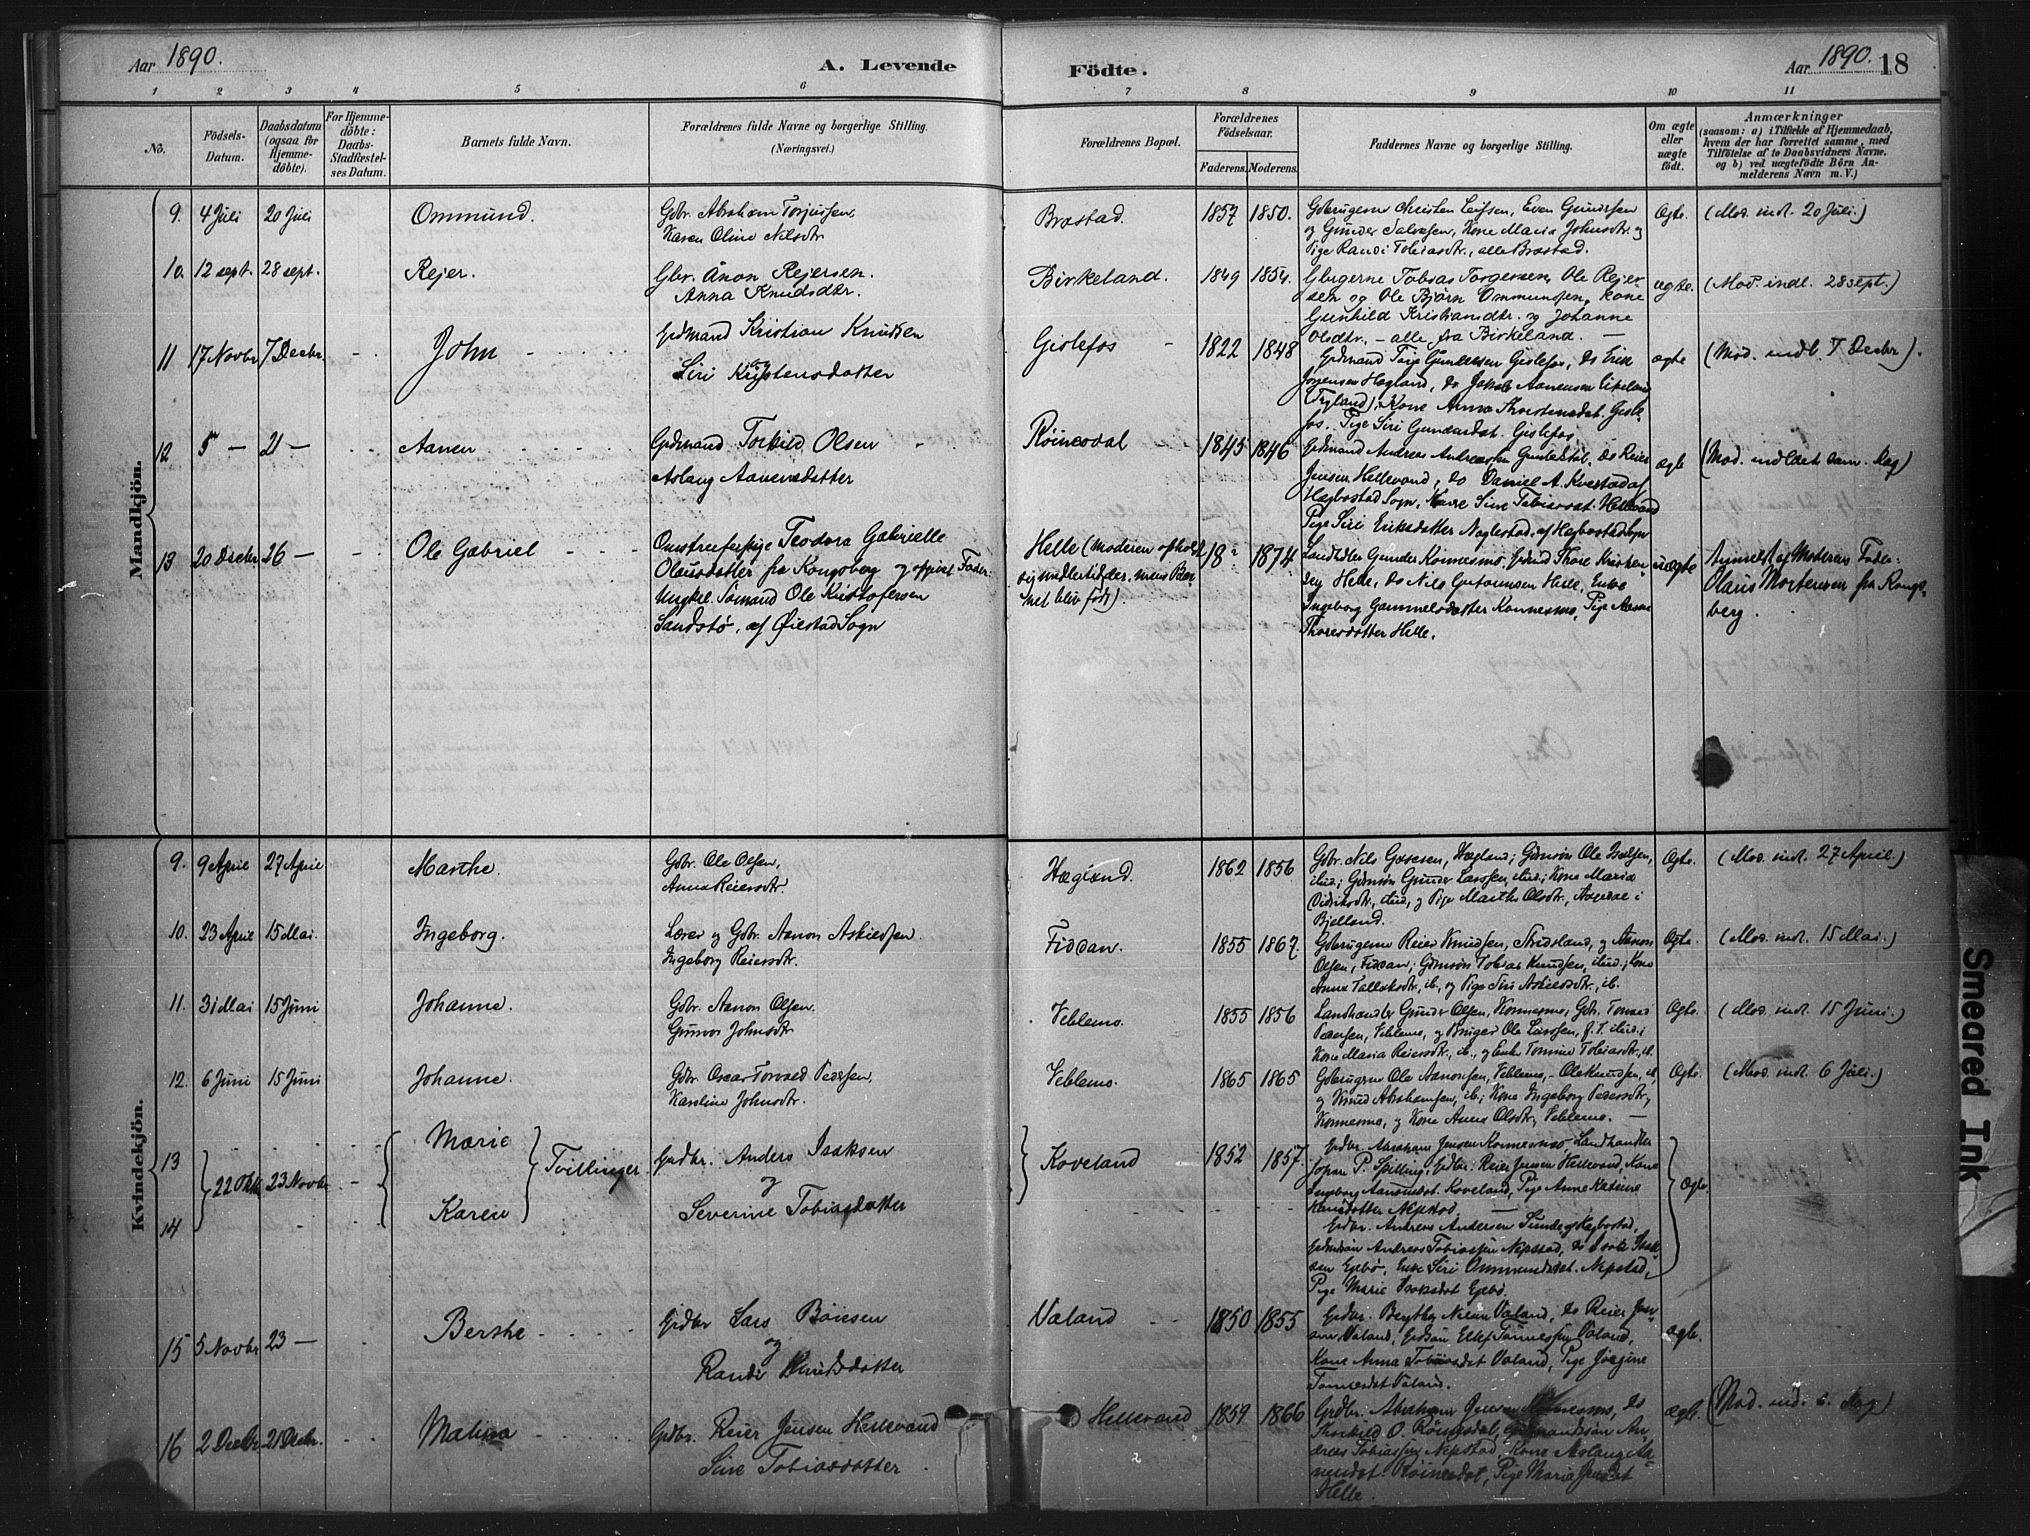 Aar 1890.
A. Levende
Födte.
Aar 1890. 18
1 2 3 4 5 6 7 8 9 10 11
No.
Födsels-
Datum.
Daabsdatum
(ogsaa for
Hjemme-
döbte).
For Hjemme-
döbte:
Daabs-
Stadfæstel-
ses Datum.
Barnets fulde Navn.
Forældrenes fulde Navne og borgerlige Stilling.
(Næringsvei.)
Forældrenes Bopæl.
Forældrenes
Födselsaar.
Faderens. Moderens.
Faddernes Navne og borgerlige Stilling.
Om ægte
eller
uægte
födt.
Anmærkninger
(saasom: a) i Tilfælde af Hjemmedaab,
hvem der har forrettet samme, med
Tilföielse af to Daabsvidners Navne,
og b) ved uægtefödte Börn An-
melderens Navn m. V.)
Mandkjön.
9. 4 Juli 20 Juli Ommund. Gbr. Abraham Torjussen,
Karen Oline Nilsdtr
Brastad. 1857 1850. Gbrugerne Christen Leifsen, Even Gundersen
og Gunder Salvesen, Kone Maria Johnsdtr. og
Pige Randi Tobiasdtr., alle Brastad.
Ægte. (Mod. indl. 20 Juli.)
10. 12 sept. 28 sept. Rejer. Gbr. Ånon Rejersen.
Anna Knudsdtr.
Birkeland. 1849 1854. Gbrgerne Tobias Torgersen, Ole Rejer-
sen og Ole Björn Ommundsen, kone
Gunhild Kristiansdtr. og Johanne
Olsdtr. - alle fra Birkeland.
ægte. (Mod. indl. 28 sept.)
11 17 Novbr 7 Decbr. John Grdmand Kristian Knudsen
og
Siri Kristensdatter
Gislefos 1822 1848 Grdmand Terje Gundersen Gislefos, do Erik
Jörgensen Hagland, do Jakob Aanensen Eikeland
(Fryland), Kone Anna Kristensdat. Gisle-
fos. Pige Siri Gundersdat. Gislefos
ægte (Mod. indl. 7 Decbr).
12 5 — 21 — Aanen Grdmand Torkild Olsen
Aslaug Aanensdatter
Röinesdal 1845 1846 Grdmand Andreas Andreassen Gundestöl, do Reier
Jensen Hellevand, do Daniel A. Kvestad af
Hægbostad Sogn, Kone Sine Tobiasdat. Hellevand
Pige Siri Eriksdatter Naglestad, af Hægbostad Sogn
ægte (Mod. indledt sam. Dag)
13 20 Decbr 26 — Ole Gabriel Omstreiferpige Teodora Gabrielle
Olausdatter fra Kongsberg og opgivet Fader:
Ungkl. Sömand Ole Kristofersen
Sandstö, af Öiestad Sogn
Helle (Moderen opholdt
sig midlertidigler, mens Bar-
net blev födt).
18? 1874 Landhdler Gunder Konnesmo, Grdmd Thore Kristen-
sen Helle, do Nils Guttormsen Helle, Enke
Ingeborg Gammelsdatter Konnesmo, Pige Aasne
Thoresdatter Helle.
uægte Anmeldt af Moderens Fader
Olaus Mortensen fra Kongs-
berg.
Kvindekjön.
9. 9 April 27 April Marthe. Gbr. Ole Olsen,
Anna Reiersdtr.
Hægland. 1862 1856 Gbr. Nils Gasesen, Hægland; Gdmsön Ole Isaksen,
ibid.; Gdmsön Gunder Larssen, ibid.; Kone Maria
Didriksdtr., ibid., og Pige Marthe Olsdtr., Aagedal i
Bjelland.
Ægte. (Mod. indl. 27 April.)
10. 23 April 15 Mai. Ingeborg. Lærer og Gbr. Aanon Askildsen.
Ingeborg Reiersdtr.
Fiddan. 1855 1867. Gbrugerne Reier Knudsen, Stridsland, og Aanon
Olsen, Fiddan; Gdmsön Tobias Knudsen, ibid.; Kone
Anne Tallaksdtr., ib., og Pige Siri Askildsdtr., ib.
Ægte. (Mod. indl. 15 Mai.)
11. 31 Mai 15 Juni Johanne. Gbr. Aanon Olsen,
Gunvor Johnsdtr
Veblemo. 1855 1856 Landhandler Gunder Olsen, Konnesmo, Gbr. Tomas
Pedersen, Veblemo, og Bruger Ole Larssen, f. T. ibid.;
Kone Maria Reiersdtr., ib., og Enke Tomine Tobiasdtr., ib.
Ægte. (Mod. indl. 15 Juni.)
12. 6 Juni 15 Juni Johanne. Gbr. Oscar Torvald Pedersen,
Karoline Johnsdtr.
Veblemo. 1865 1865 Gbrugerne Ole Aanonsen, Veblemo, - Ole Knudsen, ib.,
og Knud Abrahamsen, ib.; Kone Ingeborg Pedersdtr.,
Konnesmo, og Kone Anne Olsdtr., Veblemo.
Ægte. (Mod. indl. 6 Juli.)
13
14
22 Oktb 23 Novbr Marie
Karen
Tvillinger Grdbr. Anders Isaksen
og
Severine Tobiasdatter
Koveland 1852 1857. Grdbr. Abraham Jensen Konnesmo, Landhandler
Johan P. Spilling, Grdbr. Reier Jensen Hellevand, Kone
Ingborg Aanonsdat. Koveland, Pige Anne Katrine
Hansdatter Nepstad.
Grdbr. Andreas Andersen Sunde, Hægbostad,
Grdmdsön Andreas Tobiassen Nepstad, do Isak Isak-
sen Egebö, Enke Siri Ommundsdat. Nepstad,
Pige Marie Isaksdat Egebö.
Ægte.
15 5 Novbr 23 — Berthe Grdbr Lars Böiesen
og
Randi Knudsdatter
Valand 1850 1855 Grdbr. Berthe Nilsen Valand, do Reier Jan-
sen Valand, Grdsön Ellef Tönnessen Valand,
Kone Anna Tobiasdat Valand, Pige Jörgine
Tönnesdat Valand.
ægte.
16 2 Decbr 21 Decbr. Malina Grdbr. Reier Jensen Hellevand
Sine Tobiasdatter
Hellevand 1859 1866 Grdbr. Abraham Jensen Konnesmo, do
Thorkild O. Röinesdal, Grdmandssön An-
dreas Tobiassen Nepstad, Kone Aslaug Aa-
nensdat. Röinesdal, Pige Marie Jensdat
Helle.
ægte. (Mod. ind. s. Dag)
Smeared Ink